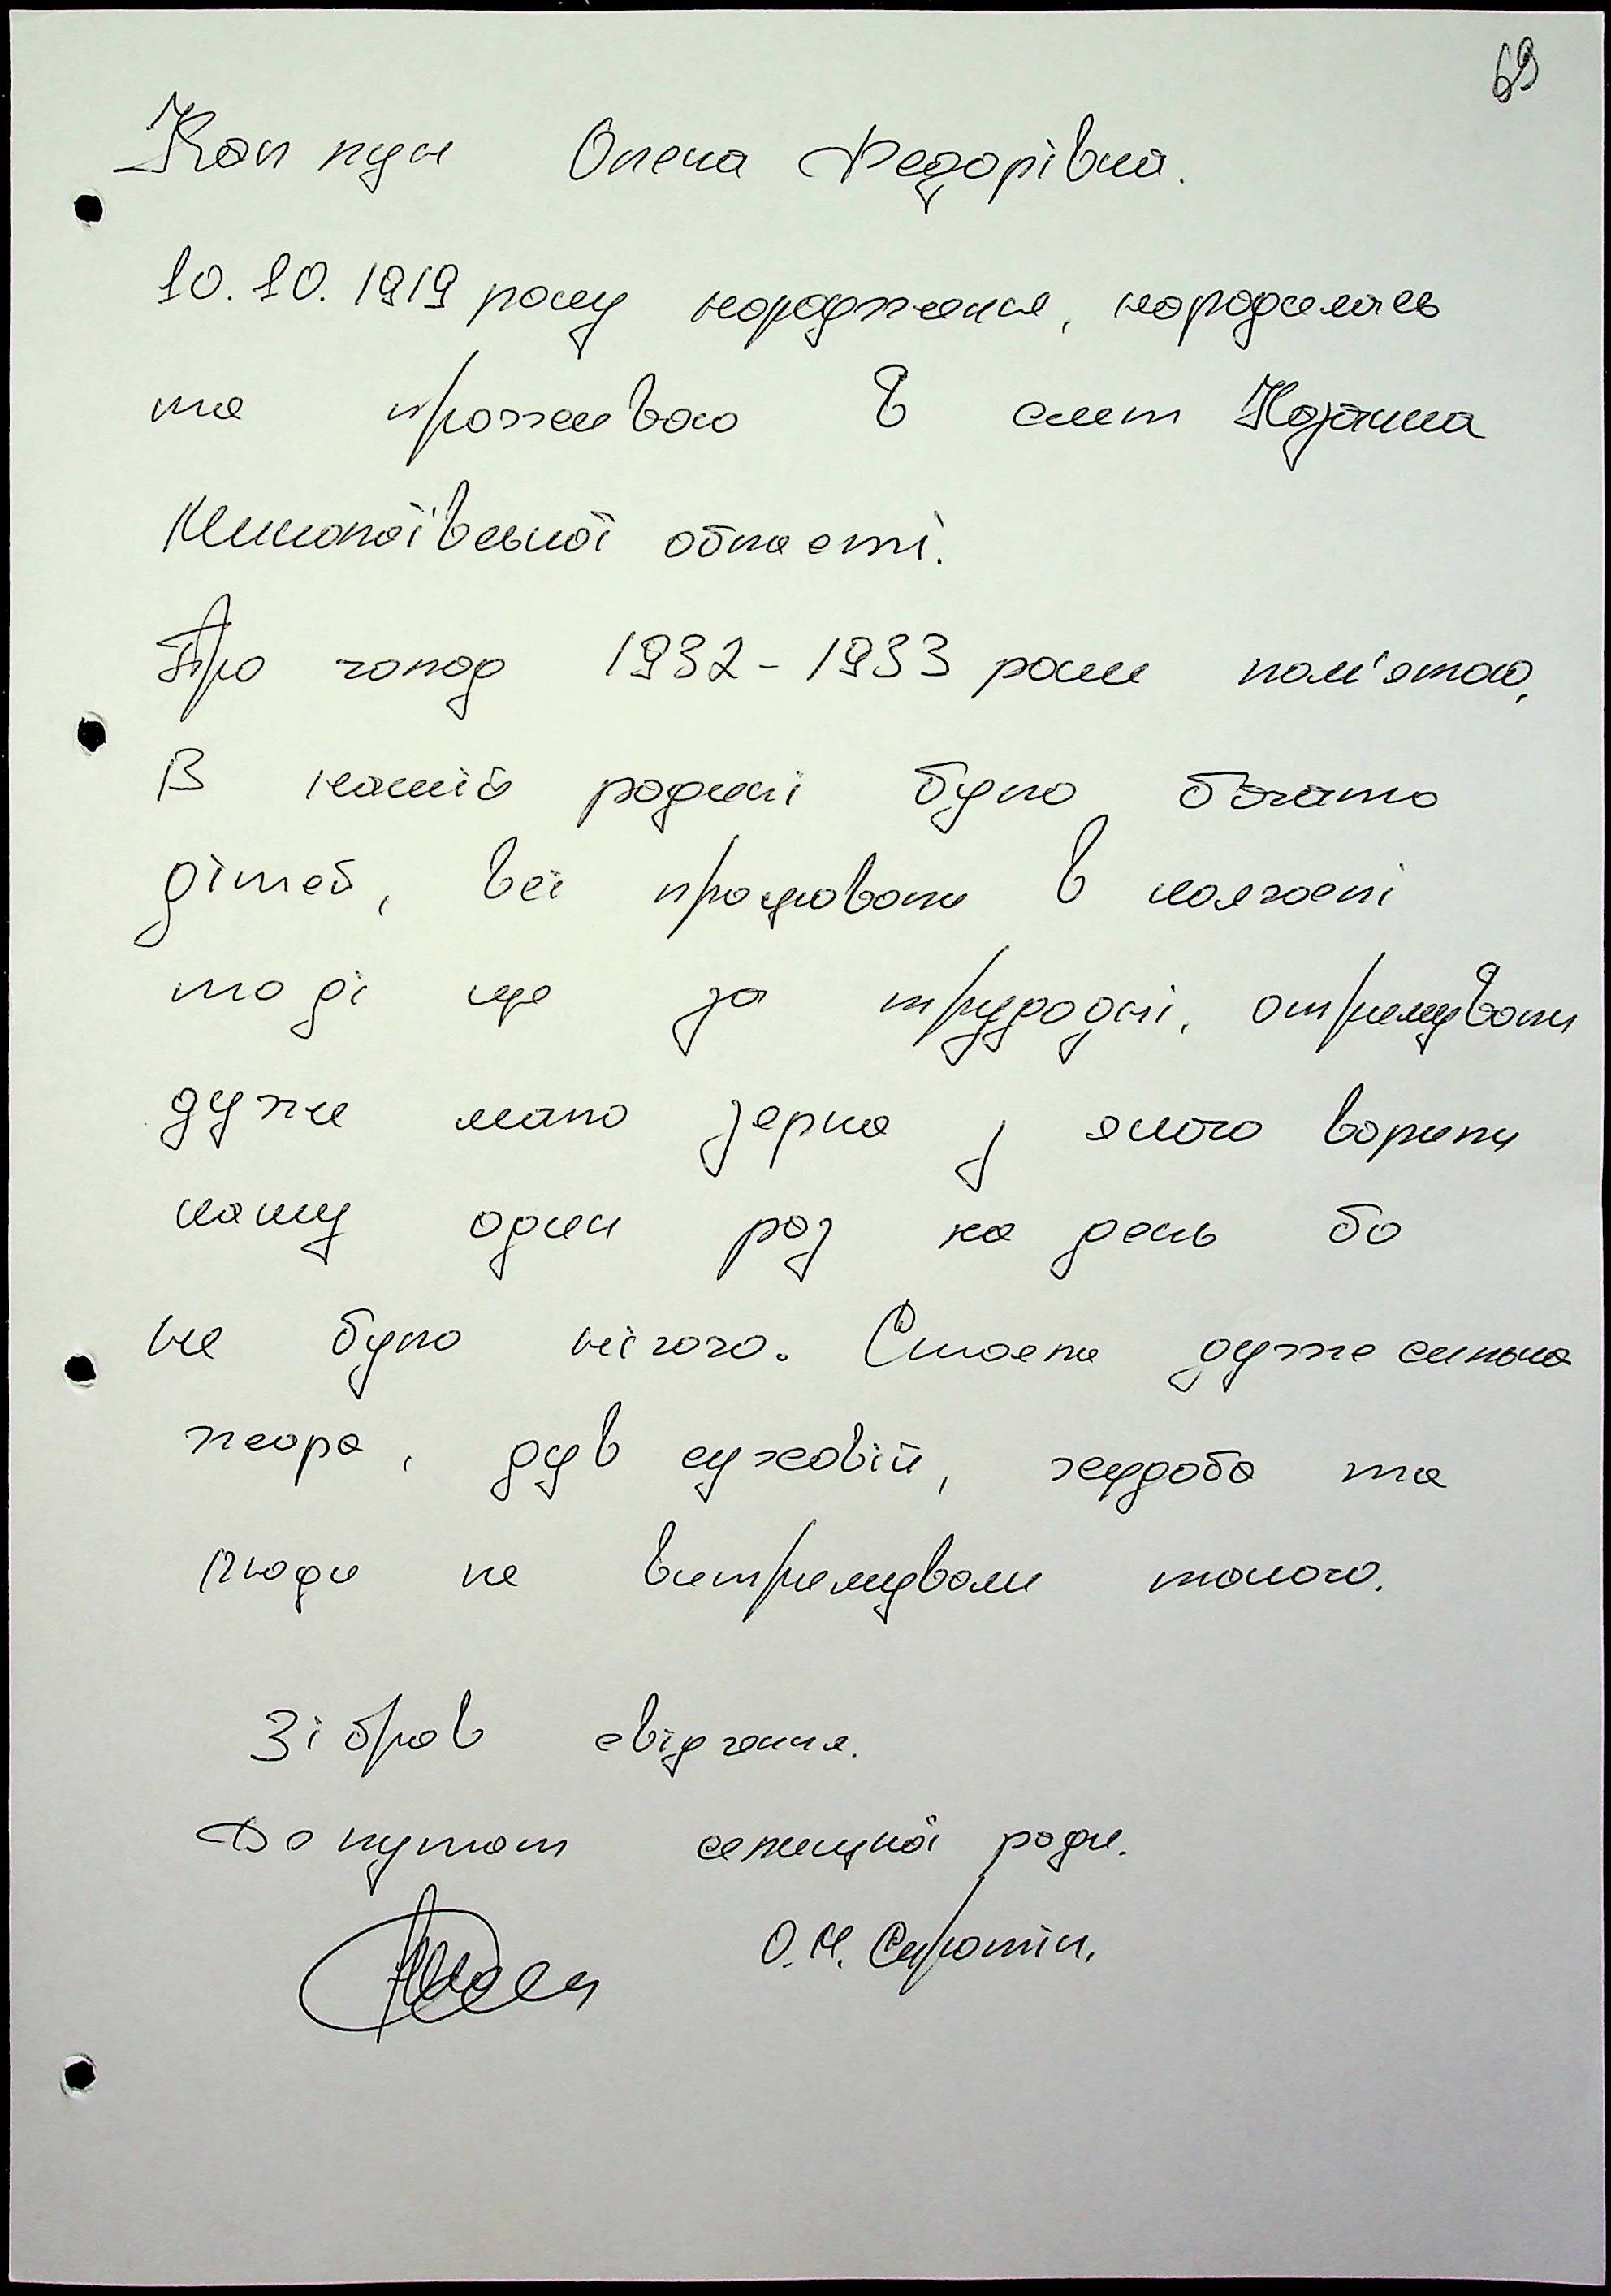 69
Каплун Олена Федорівна.
10.10.1919 року народження, народилась
та проживаю в смт
Миколаївської області.
Про голод 1932-1933 роки пам'ятаю,
В нашій родині було багато
дітей, всі працювали в колгоспі
тоді ще за трудодні, отримували
дуже мало зерна з якого варили
кашу один раз на день бо
не було нічого. Стояла дуже сильна
жара, дув суховій, худоба та
люди не витримували такого.
Зібрав свідчення.
Депутат селищної ради.
О.М. Сиротін.